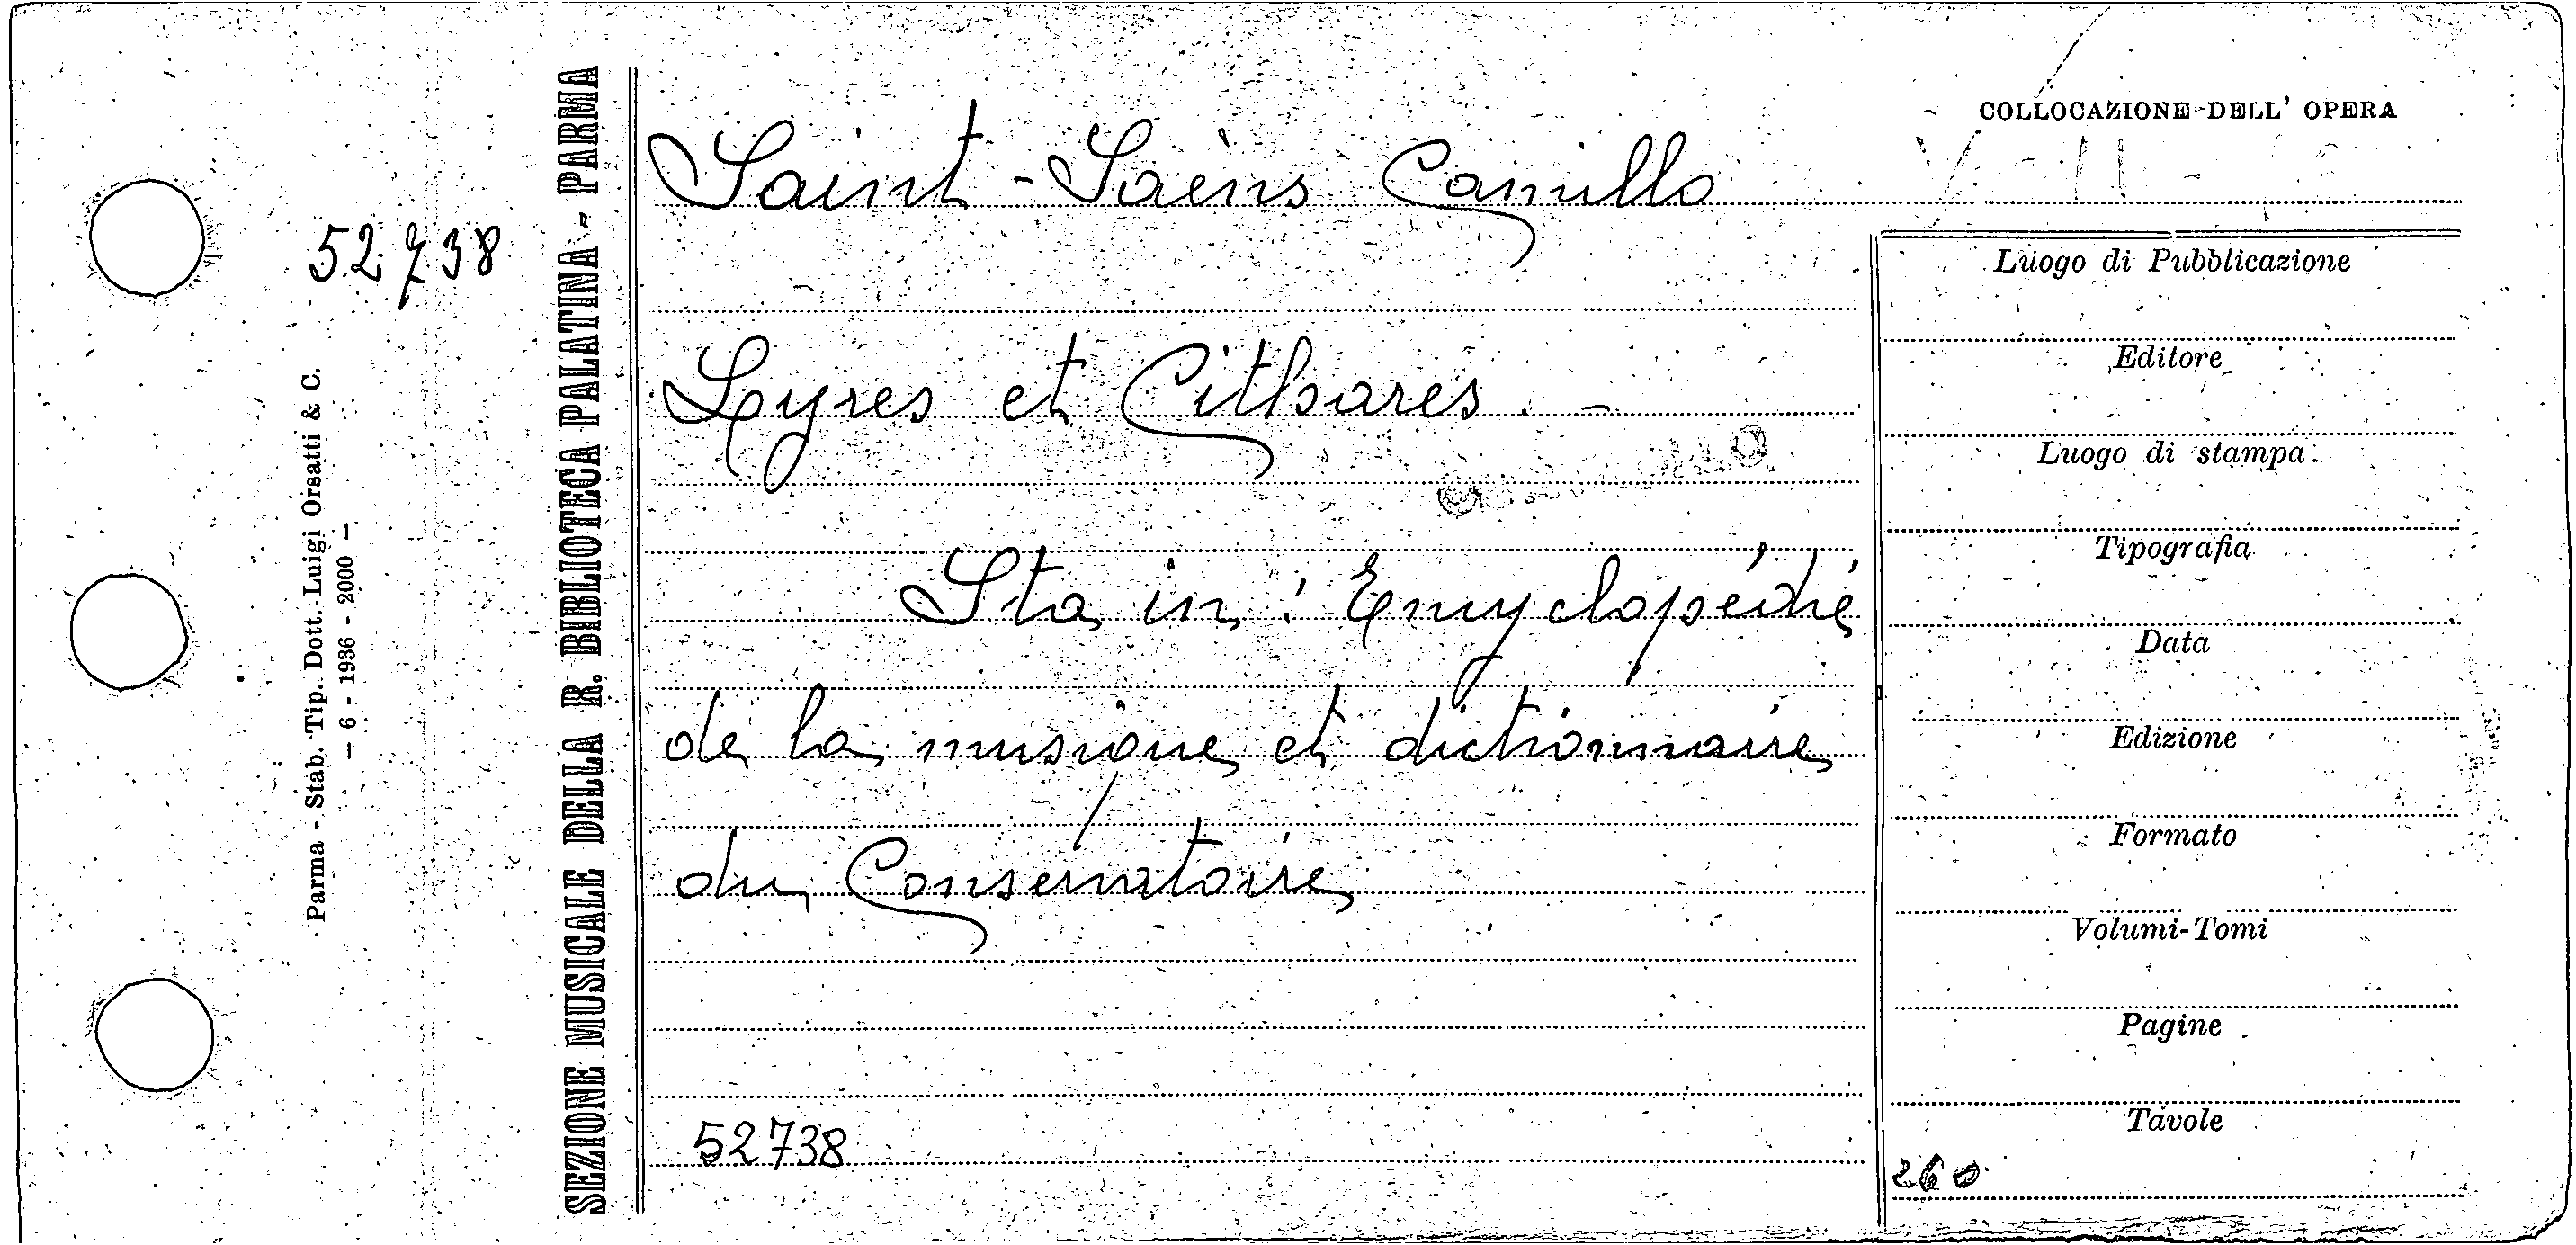 52738
Parma - Stab. Tip. Dott. Luigi Orsatti & C.
— 6 - 1936 - 2000 —
SEZIONE MUSICALE DELLA R. BIBLIOTECA PALATINA - PARMA
Saint-Saëns Camillo
Lyres et Cithares. -
Sta in: Encyclopédie
de la musique et dictionnaire
du Conservatoire
52738
COLLOCAZIONE DELL' OPERA
Luogo di Pubblicazione
Editore
Luogo di stampa
Tipografia
Data
Edizione
Formato
Volumi-Tomi
Pagine
Tavole
260